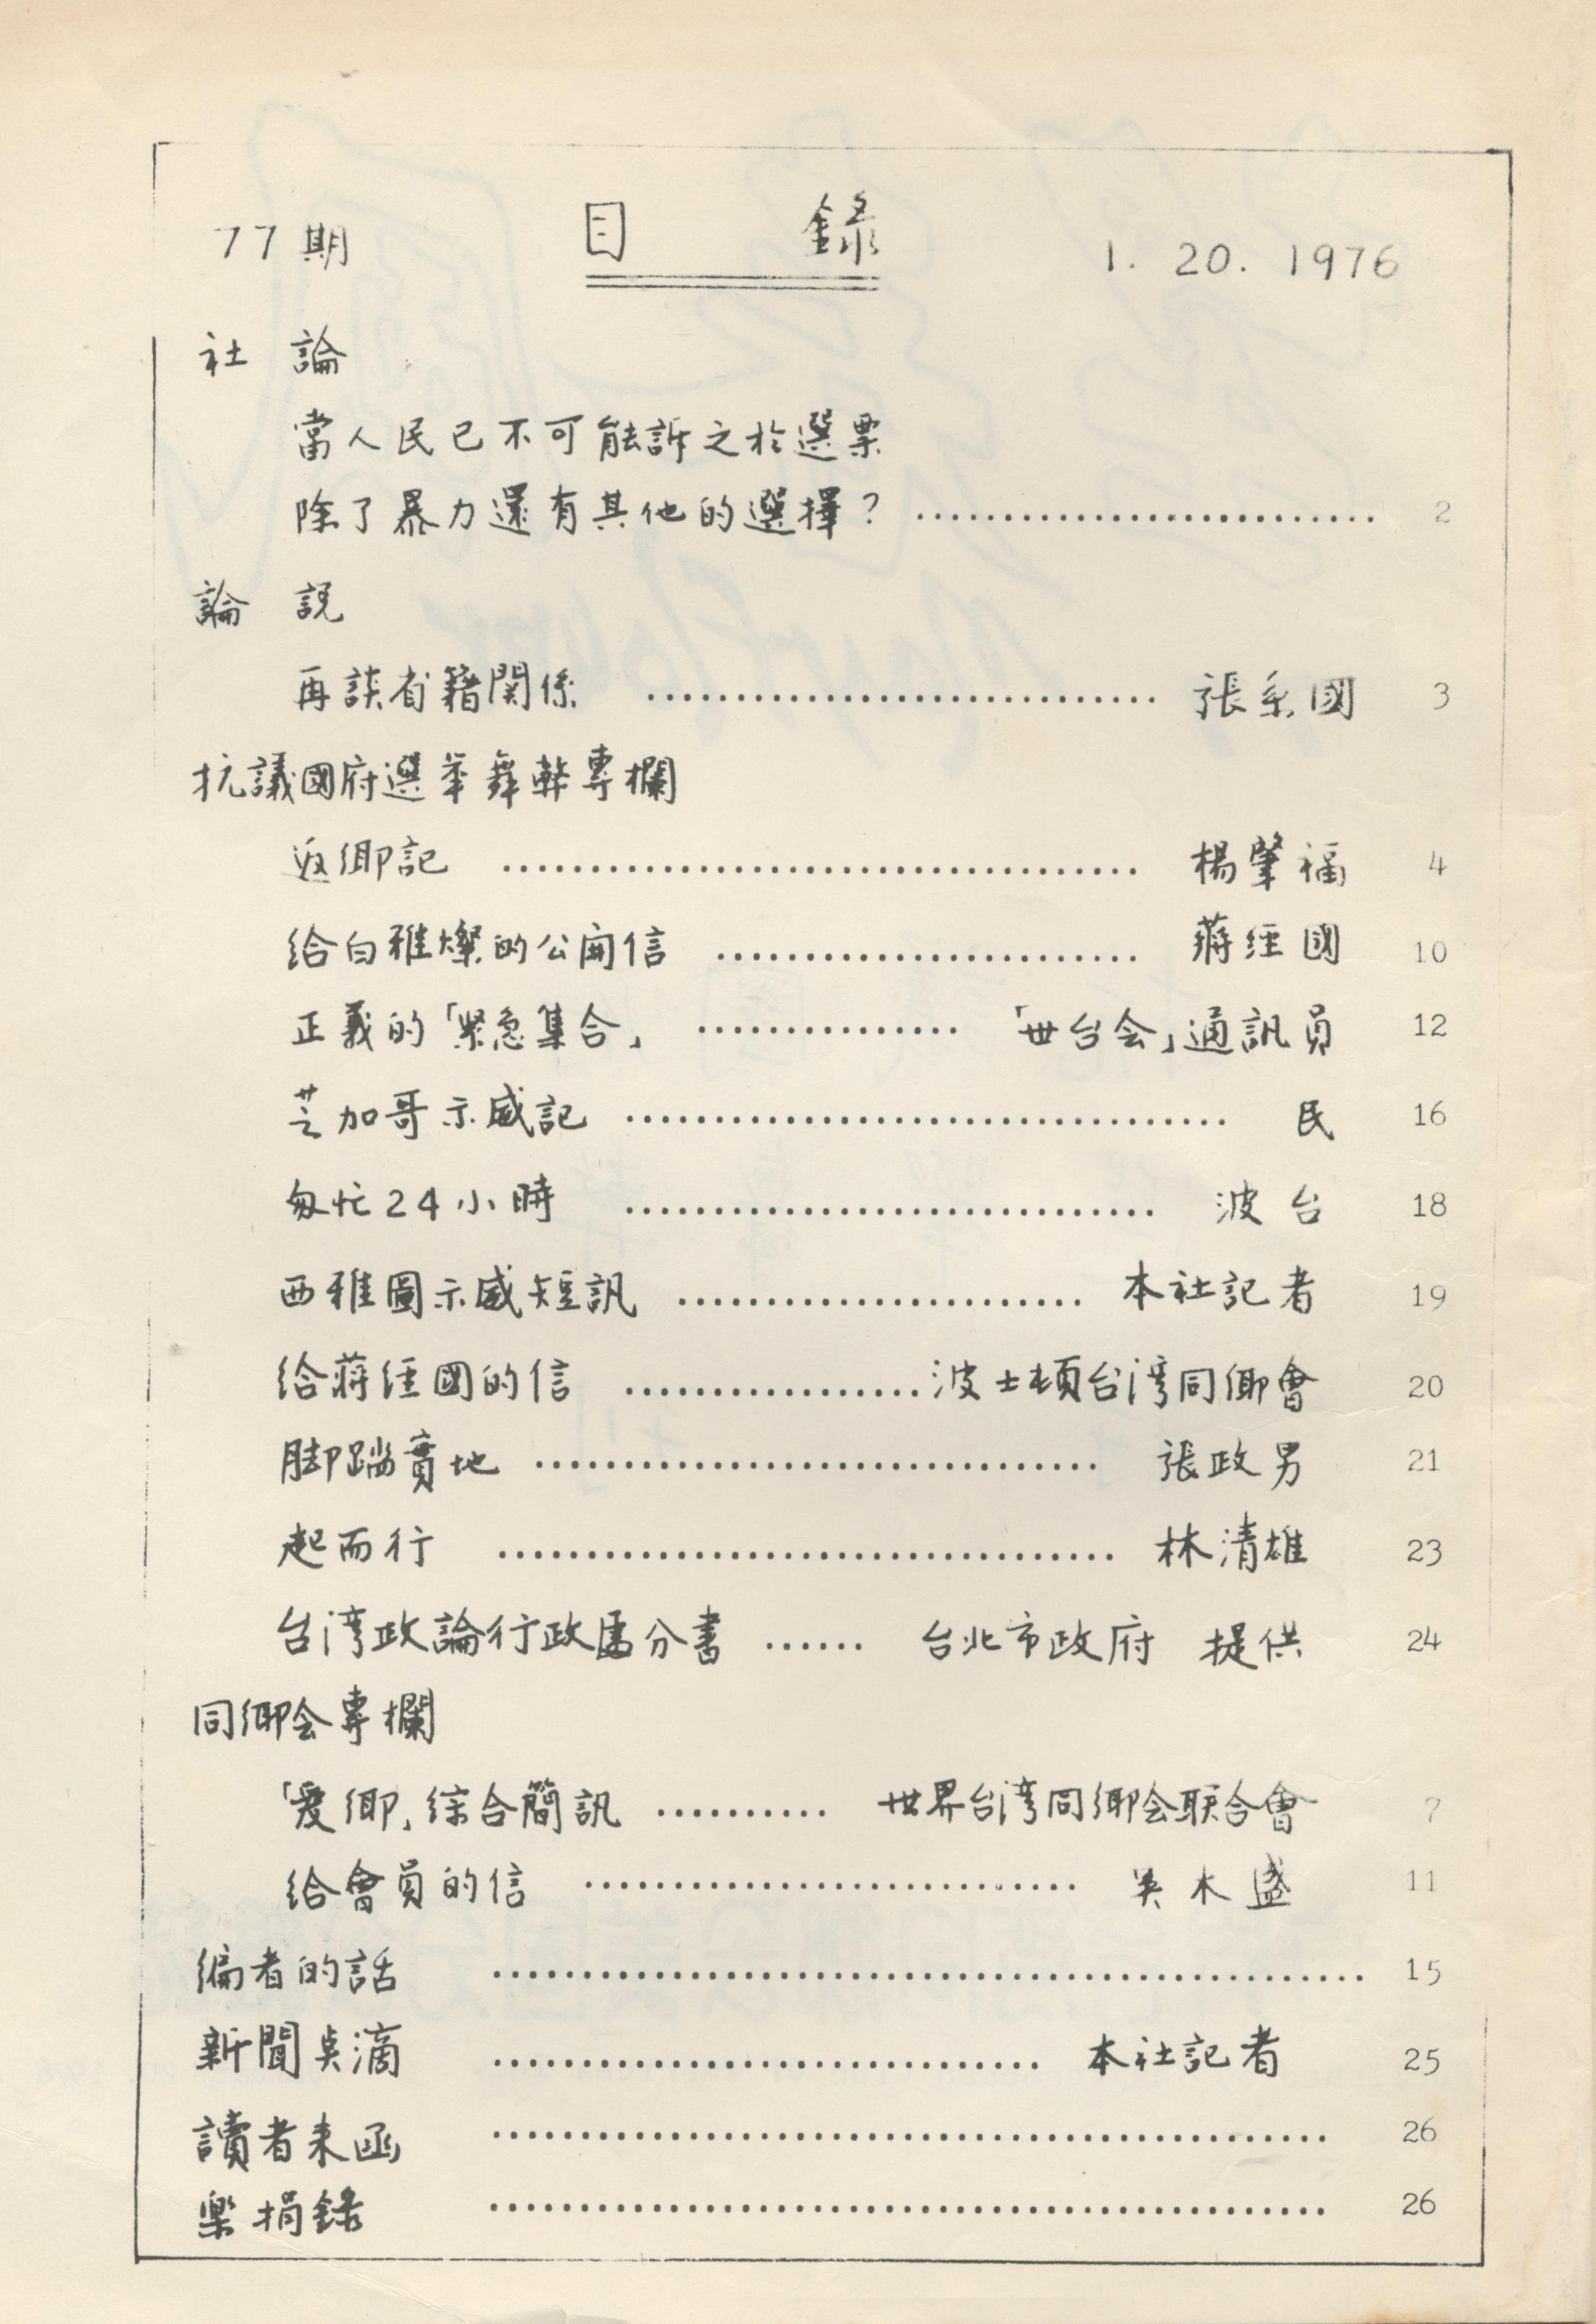 77期 目錄 1. 20. 1976
社論
當人民已不可能訴之於選票
除了暴力還有其他的選擇？ ………………………… 2
論說
再談省籍関係 ………………………… 張系國 3
抗議國府選举舞弊專欄
返鄉記 ………………………… 楊肇福 4
給白雅燦的公開信 ………………………… 蔣經國 10
正義的「緊急集合」 ………………………… 「世台会」通訊員 12
芝加哥示威記 ………………………… 民 16
匆忙24小時 ………………………… 波台 18
西雅圖示威短訊 ………………………… 本社記者 19
給蔣經國的信 ………………………… 波士頓台湾同鄉會 20
脚踏實地 ………………………… 張政男 21
起而行 ………………………… 林清雄 23
台湾政論行政處分書 …… 台北市政府 提供 24
同鄉会專欄
「愛鄉」綜合簡訊 ………… 世界台湾同鄉会联合會 7
給會員的信 ………………………… 吳木盛 11
編者的話 ………………………… 15
新聞奌滴 ………………………… 本社記者 25
讀者来函 ………………………… 26
樂捐錄 ………………………… 26